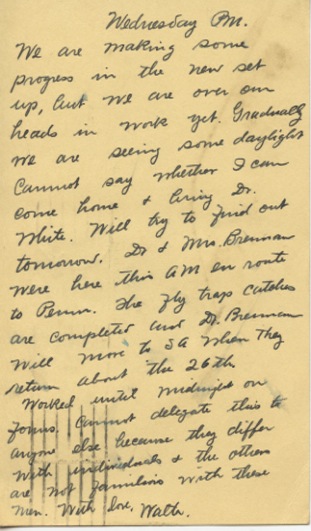 Wednesday PM.
We are making some
progress in the new set
up, but we are over our
heads in work yet. Gradually
we are seeing some daylight
Cannot say whether I can
come home & bring Dr.
White. Will try to find out
tomorrow. Dr & Mrs. Brennan
were here this AM en route
to Penn. The fly trap catches
are completed and Dr. Brennan
will move to SA when they
return about the 26th.
Worked until midnight on
forms. Cannot delegate this to
anyone else because they differ
with individuals & the others
are not familiar with these
men. With love, Walt.